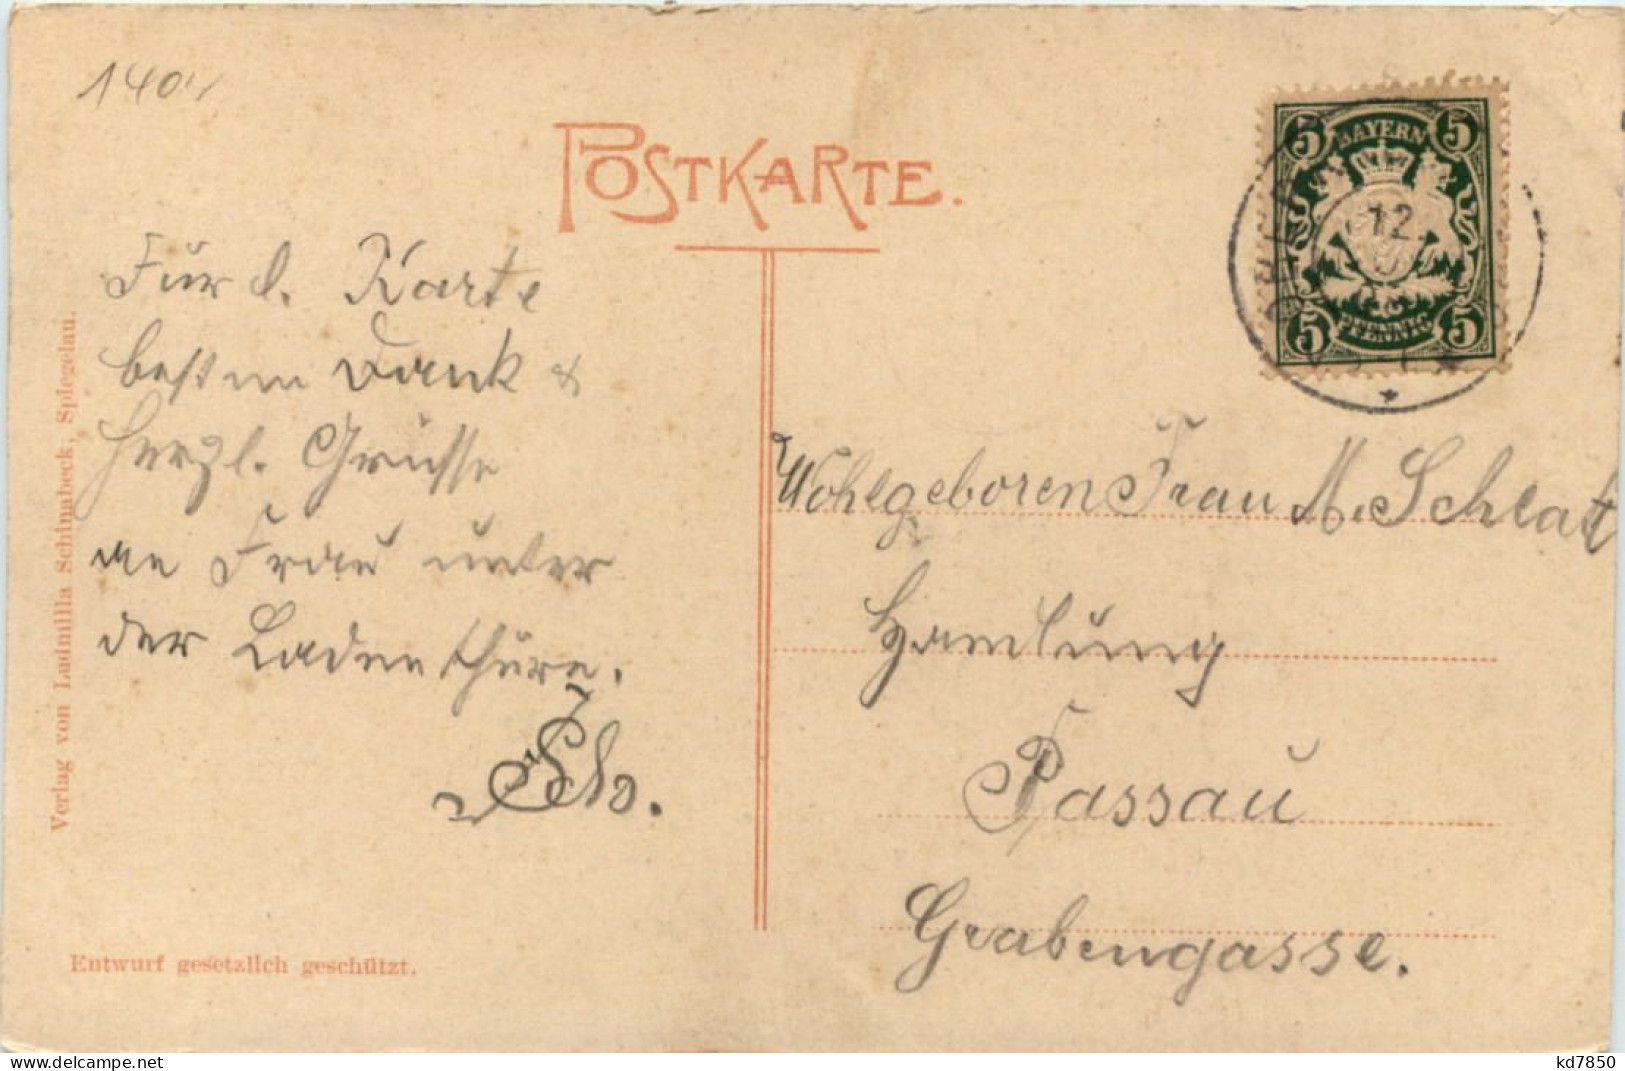 140
POSTKARTE.
BAYERN
5 5
12
5 5
PFENNIG
Für d. Karte
besten Dank &
herzl. Grüsse
an Frau unter
der Ladenthüre.
Wohlgeboren Frau M. Schlatt
Handlung
Passau
Grabengasse.
Verlag von Ludmilla Schinabeck, Spiegelau.
Entwurf gesetzlich geschützt.
https://www.delcampe.net
kd7850